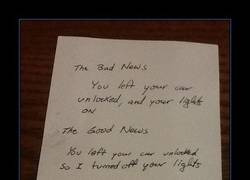 The Bad News
You left your car
unlocked, and your lights
on
The Good News
You left your car unlocked
So I turned off your lights